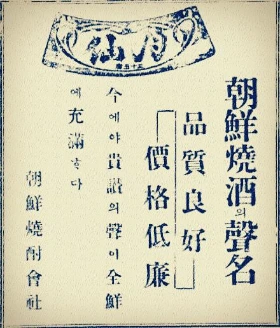 月仙
朝鮮燒酒의聲名
品質良好
價格低廉
今에야賞讚의聲이全鮮
에充滿ᄒᆞ다
朝鮮燒酎會社